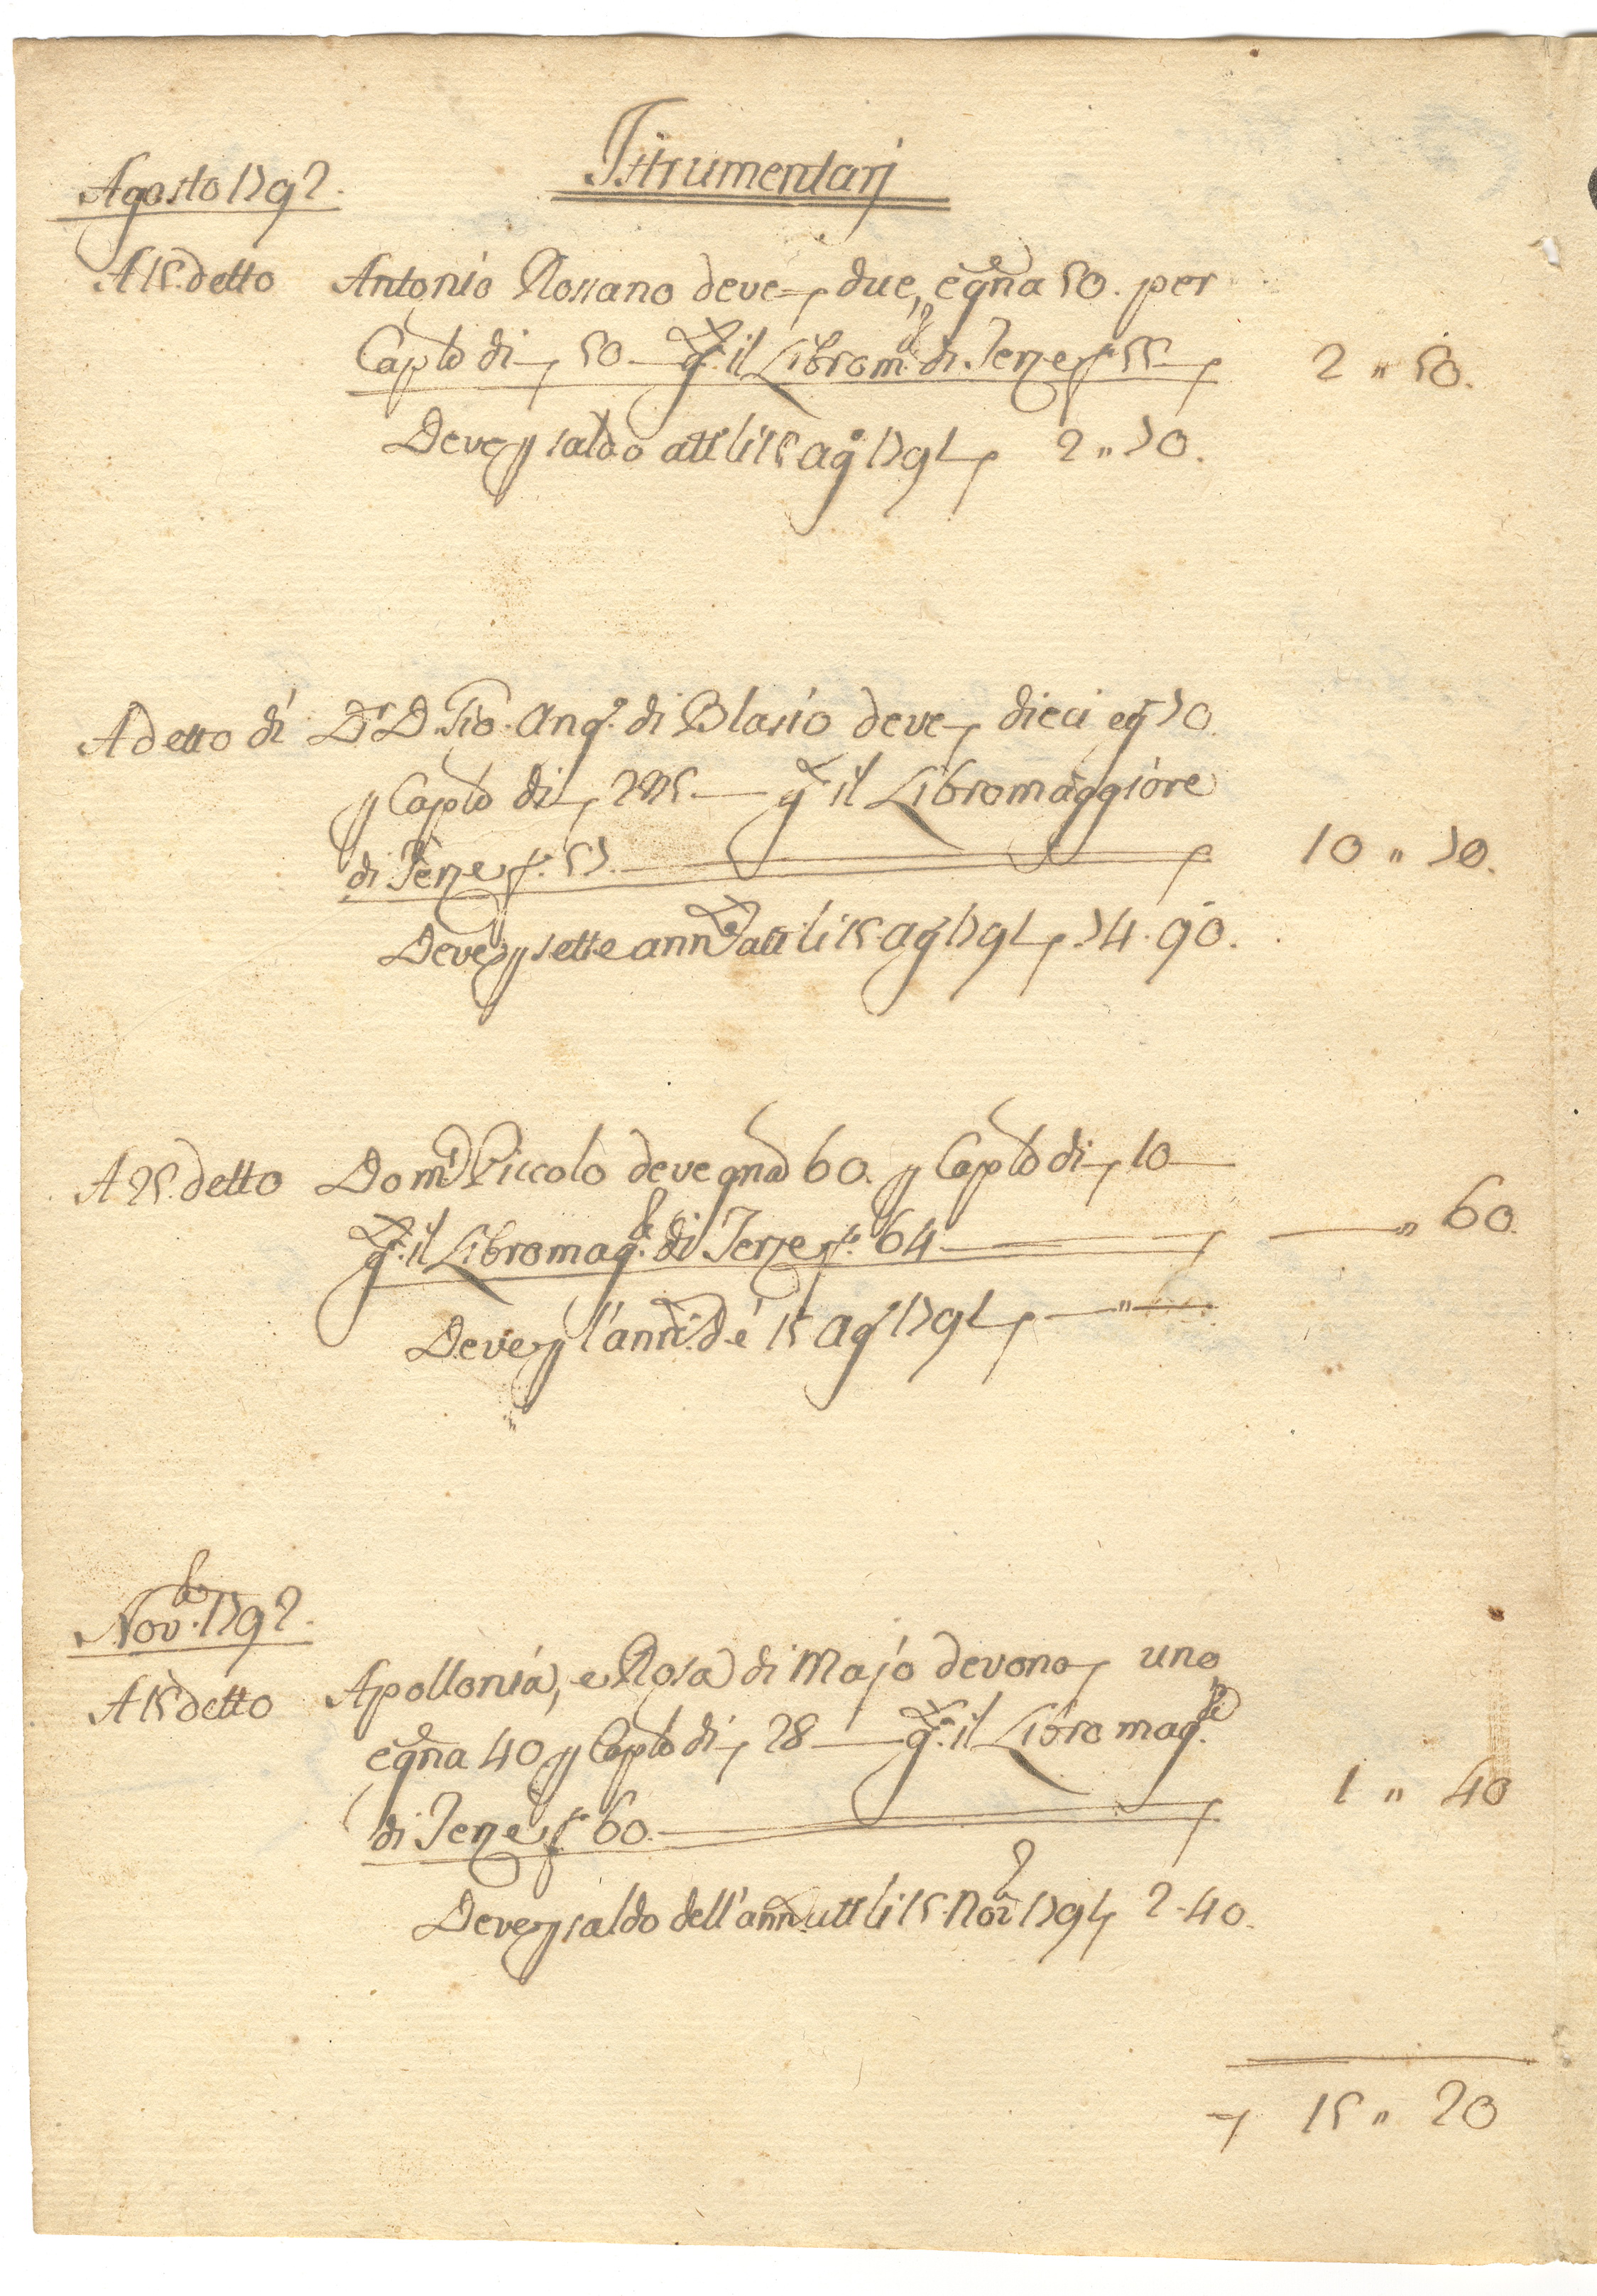 Istrumentarj
Agosto 1792.
A 15. detto Antonio Rossano deve due, e gna 50. per
Caplo di 50 — il Libro m.re di Terze f. 55 2 " 50.
Deve saldo att li 15 ag.o 1791 2 " 70.
A detto dì D.r D. Gio. Ang.o di Blasio deve dieci e g 70.
Caplo di — q il Libro maggiore
di Terze f. 57. 10 " 70.
Deve sette ann att li 15 ag 1791 74. 90.
A 25. detto Dom.co Piccolo deve gna 60. Caplo di 10 —
il Libro mag.re di Terze f. 64 — " 60.
Deve l'ann. de 15 ag 1791 — " —
Nov.bre 1792.
A 15 detto Apollonia, e Rosa di Majo devono uno
e gna 40 Caplo di 28 — il Libro mag.re
di Terze f. 60. 1 " 40
Deve saldo dell'ann utt li 15 Nov 1791 2 - 40.
15 " 20